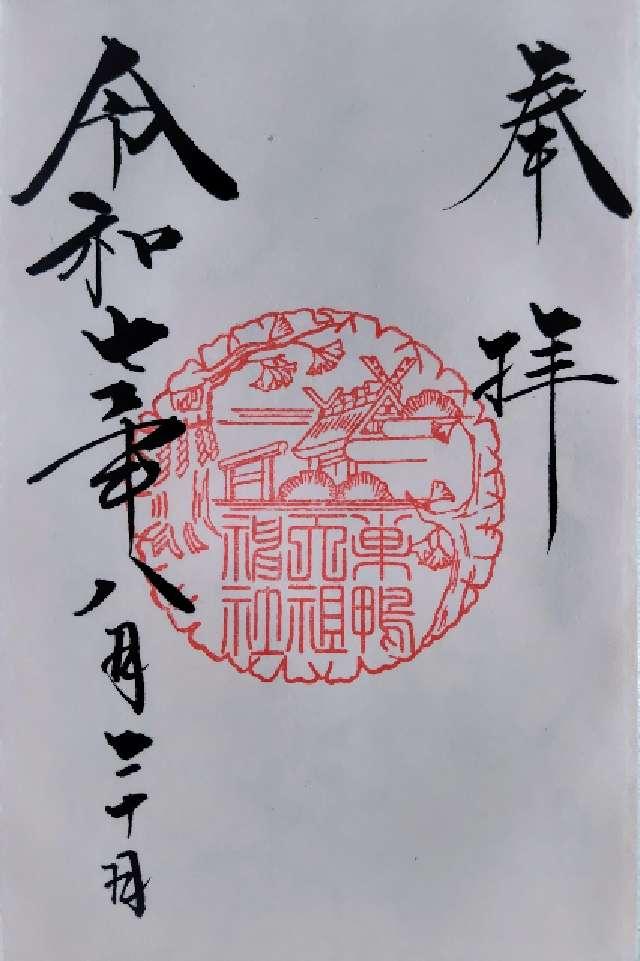 奉拝
巣鴨
天祖
神社
令和七年八月二十日